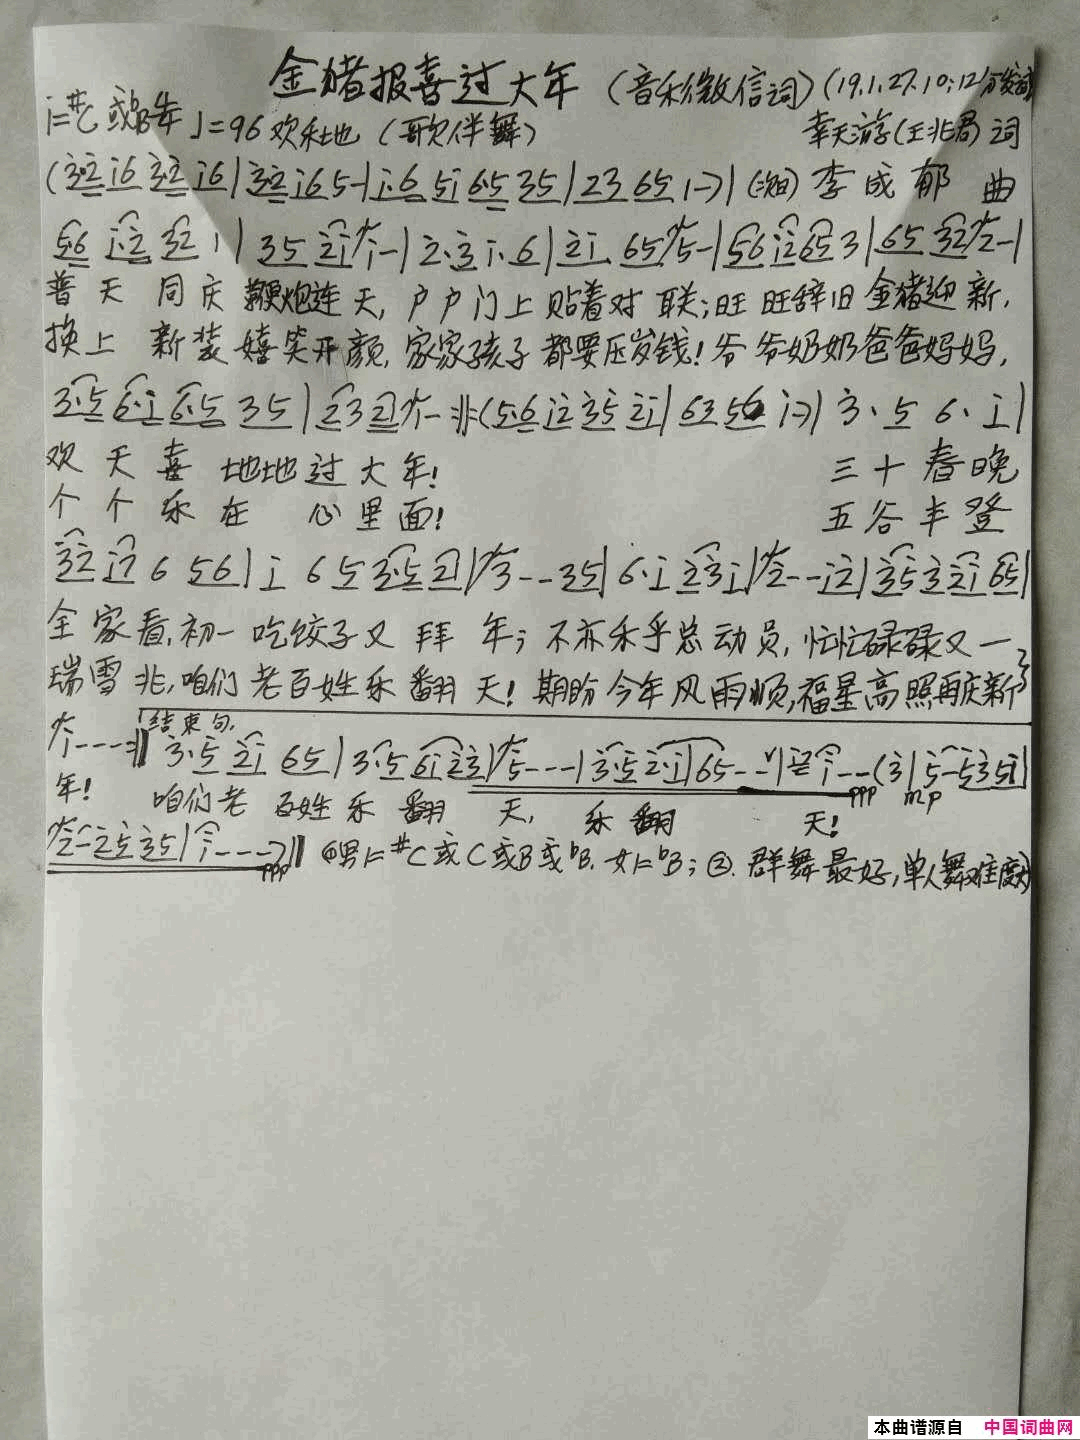 金猪报喜过大年 (音乐微信词) (19.1.27.10:12分发
i=#C 或bB ♩=96 欢乐地 (歌伴舞) 幸天游(王兆君) 词
(3·2 i6 3·2 i6|3·2 i6 5-|i·6 5i 6·5 35|23 65 1-)| 李成郁 曲
5·6 i·2 32 i|35 2i i-|2·3 i·6|2i 65 5-|56 i2 65 3|65 32 2-|
普天 同庆 鞭炮连天,户户门上贴着对联;旺旺辞旧金猪迎新,
换上 新装 嬉笑开颜,家家孩子都要压岁钱!爷爷奶奶爸爸妈妈,
3·5 6·i 6·5 35|23 2i i- :‖:(5·6 i2 35 2i|63 56 i-)|3·5 6·i|
欢天喜 地地过大年! 三十春晚
个个乐在 心里面! 五谷丰登
32 i7 6 56|i 65 3·5 2|3--35|6·i 23 i|2--i2|35 3 2i 65|
全家看,初一吃饺子又拜年;不亦乐乎总动员,忙忙碌碌又一
瑞雪兆,咱们老百姓乐翻天!期盼今年风雨顺,福星高照再庆新
i---:‖ 结束句. 3·5 2i 65|3·5 6i 23|5---|3·5 2·i|65--|i--(3|5-535i|
年! 咱们老百姓乐翻天, 乐翻 天! ppp mp
2-25 35|i----)‖ ppp ①男1=#C或C或B或bB.女1=bB;②.群舞最好,单人舞难度大
本曲谱源自 中国词曲网